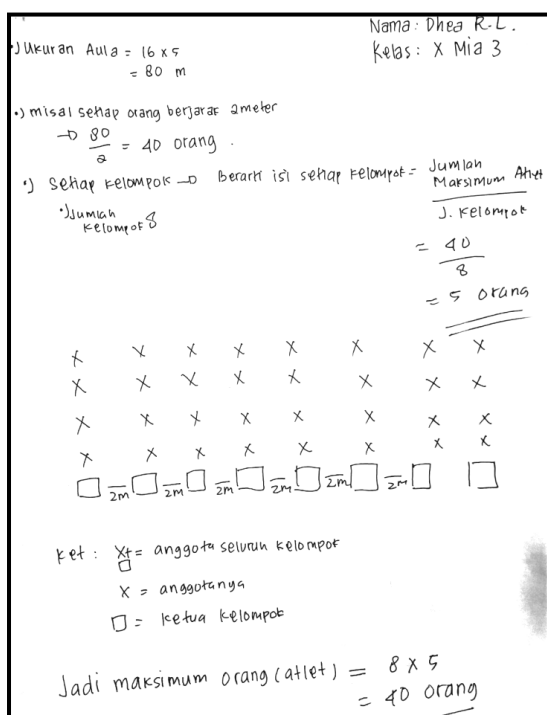 Nama : Dhea R.L.
Kelas : X Mia 3
•) Ukuran Aula = 16 x 5
= 80 m
•) misal setiap orang berjarak 2meter
→ 80/2 = 40 orang.
•) Setiap kelompok → Berarti isi setiap kelompok = Jumlah Maksimum Atlet / J. Kelompok
•) Jumlah
kelompok 8
= 40/8
= 5 orang
x x x x x x x x
x x x x x x x x
x x x x x x x x
x x x x x x x x
□ 2m □ 2m □ 2m □ 2m □ 2m □ 2m □ □
ket : x+□ = anggota seluruh kelompok
x = anggotanya
□ = ketua kelompok
Jadi maksimum orang (atlet) = 8 x 5
= 40 orang